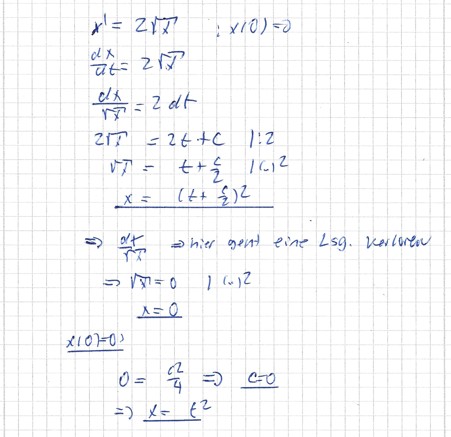 x' = 2√x ; x(0)=0
dx/dt = 2√x
dx/√x = 2 dt
2√x = 2t+c |:2
√x = t+c/2 |(..)²
x = (t+c/2)²
=> dt/√x => hier geht eine Lsg. verloren
=> √x = 0 | (..)²
x=0
x(0)=0:
0 = c²/4 => c=0
=> x = t²